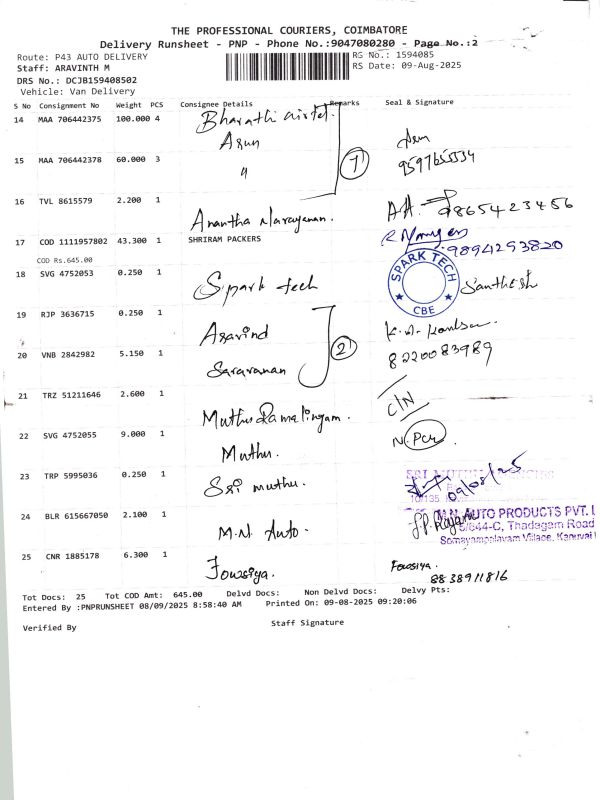 THE PROFESSIONAL COURIERS, COIMBATORE
Delivery Runsheet - PNP - Phone No.:9047080280 - Page No.:2
Route: P43 AUTO DELIVERY
RG No.: 1594085
Staff: ARAVINTH M
RS Date: 09-Aug-2025
DRS No.: DCJB159408502
Vehicle: Van Delivery
S No Consignment No Weight PCS Consignee Details Remarks Seal & Signature
14 MAA 706442375 100.000 4 Bharathi airtel.
Arun
15 MAA 706442378 60.000 3 " 7 9597655534
16 TVL 8615579 2.200 1 Anantha Narayanan. 9865423456
17 COD 1111957802 43.300 1 SHRIRAM PACKERS
COD Rs.645.00
9894293820
18 SVG 4752053 0.250 1 Spark tech SPARK TECH CBE Santhesh
19 RJP 3636715 0.250 1 Aravind
20 VNB 2842982 5.150 1 Saravanan 2 8220083989
21 TRZ 51211646 2.600 1 Muthu Ramalingam. C/N
22 SVG 4752055 9.000 1 Muthu.
23 TRP 5995036 0.250 1 Sri muthu. 09/08/25
24 BLR 615667050 2.100 1 M.N. Auto.
M.N. AUTO PRODUCTS PVT. L
5/644-C, Thadagam Road
Somayampalayam Village, Kanuvai
25 CNR 1885178 6.300 1 Fowsiya. Fowsiya.
8838911816
Tot Docs: 25 Tot COD Amt: 645.00 Delvd Docs: Non Delvd Docs: Delvy Pts:
Entered By :PNPRUNSHEET 08/09/2025 8:58:40 AM Printed On: 09-08-2025 09:20:06
Verified By Staff Signature